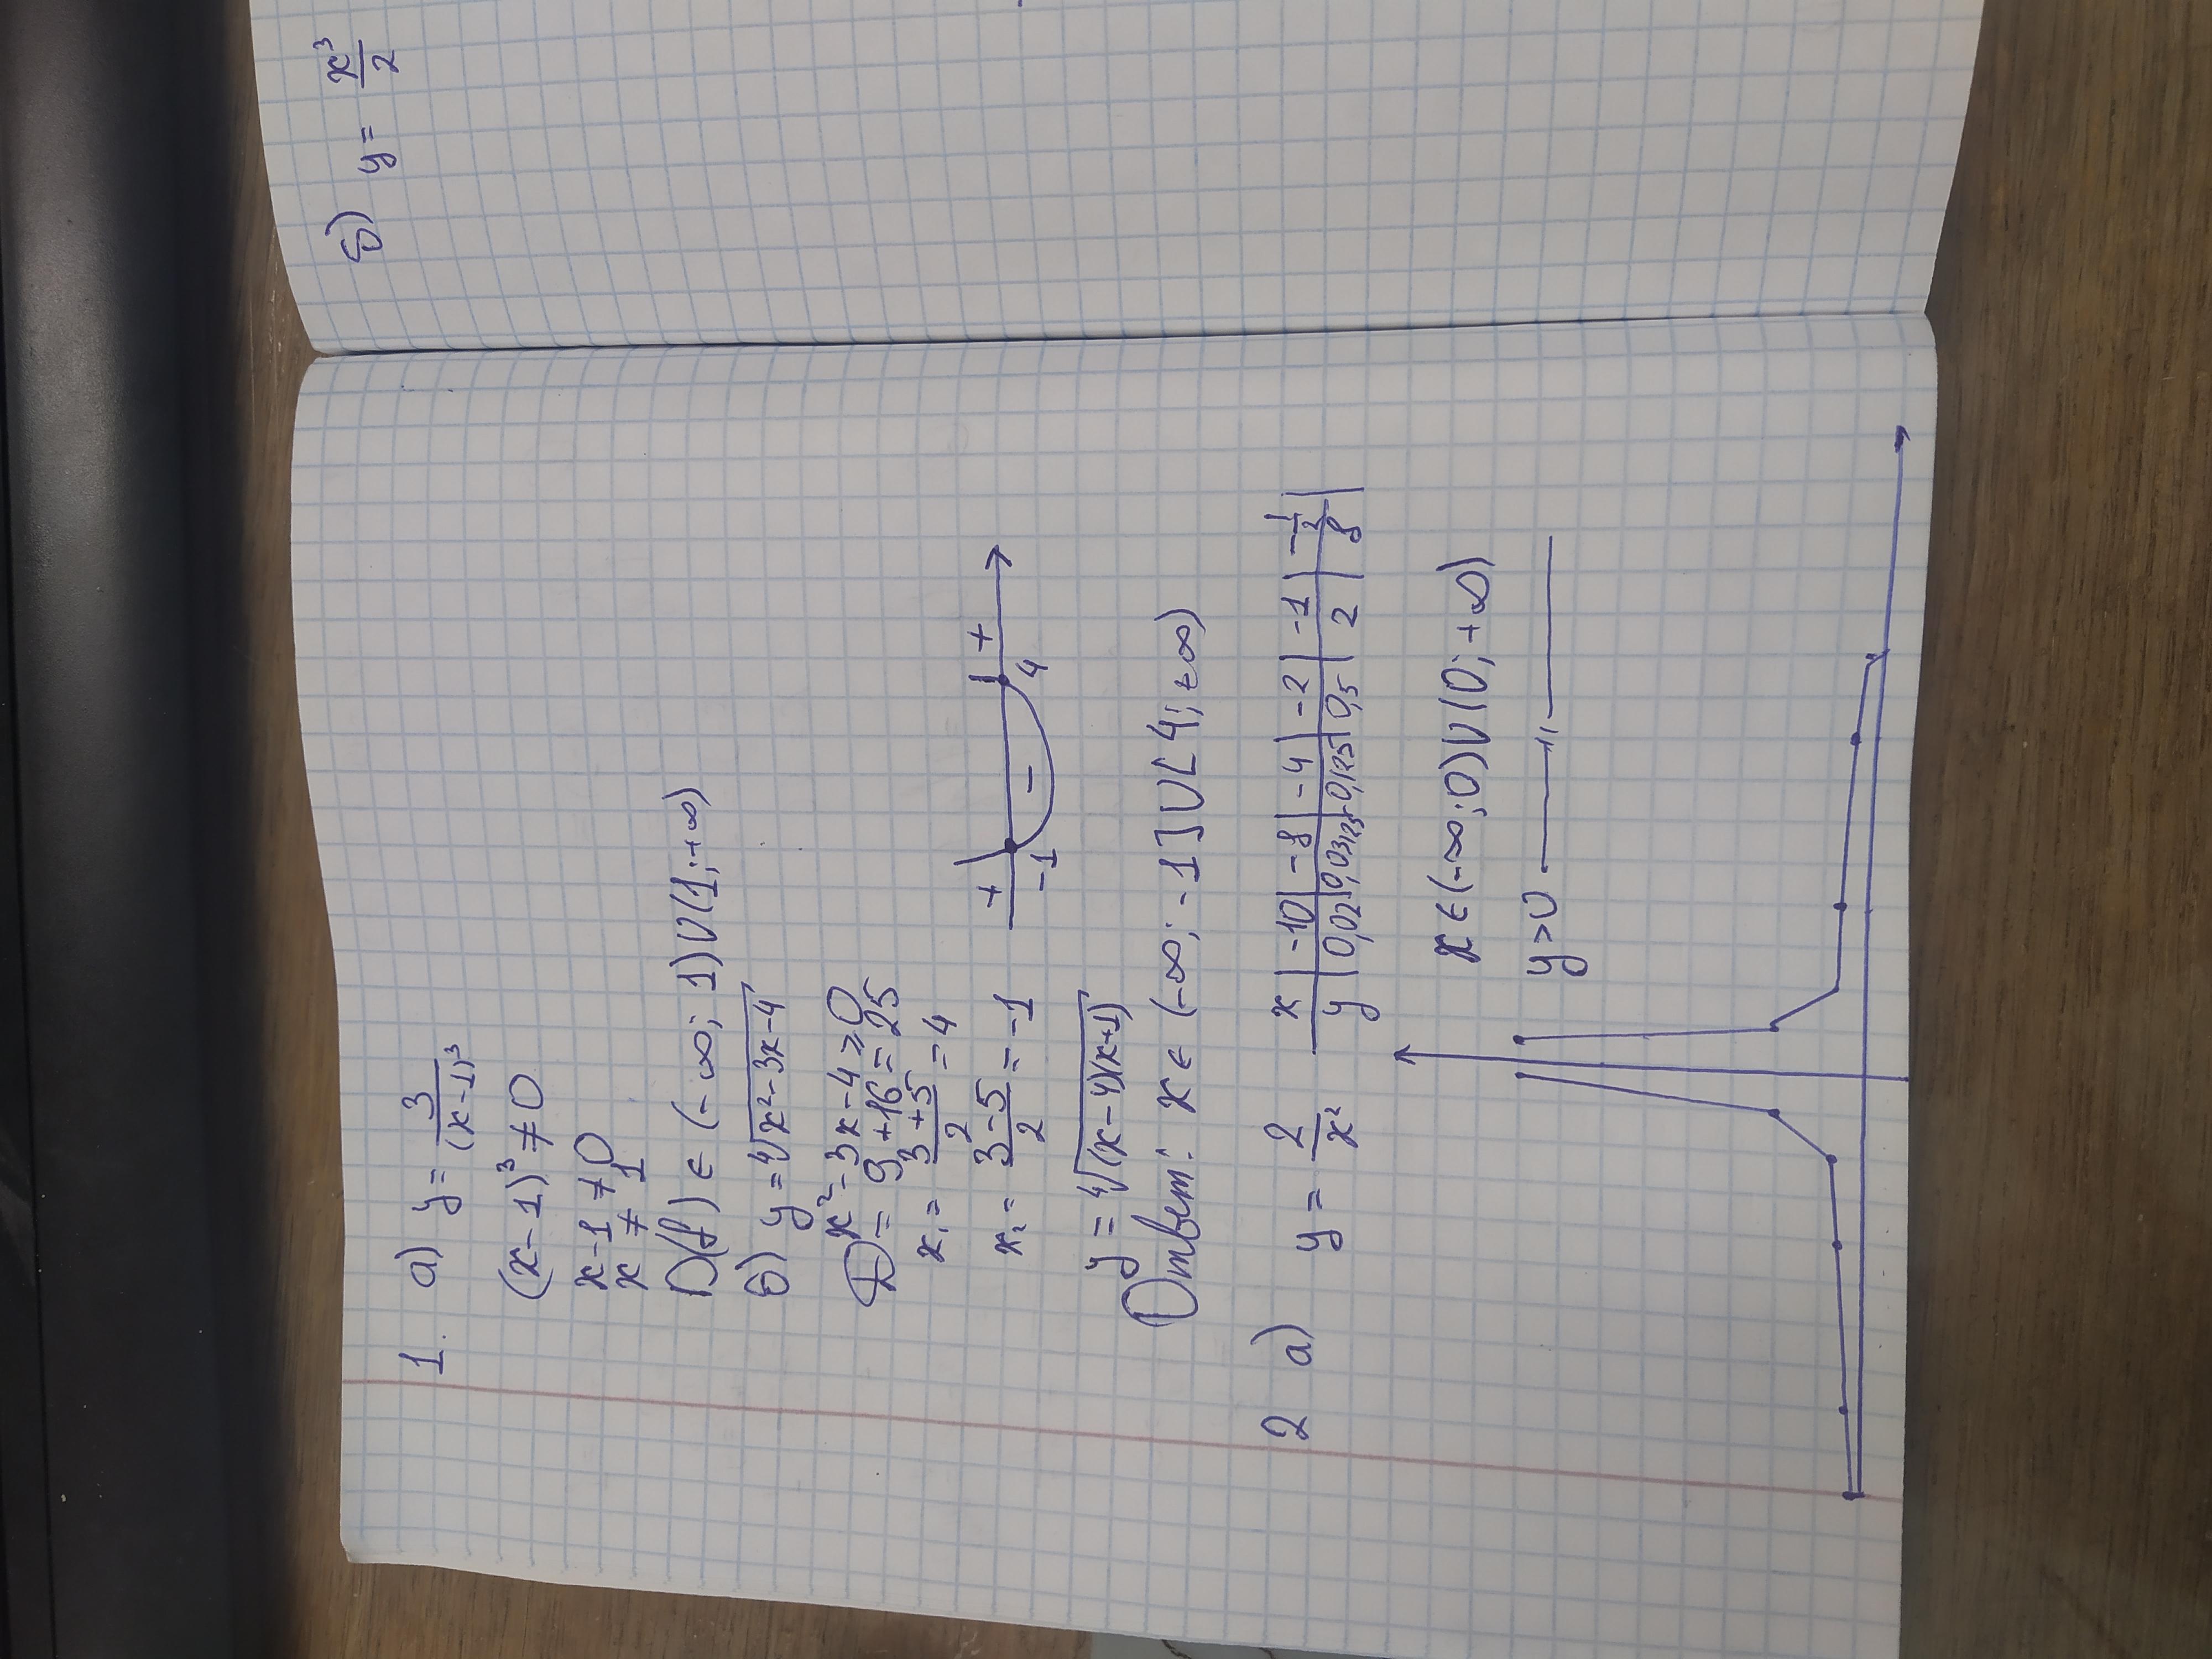 1. а) y = 3/(x-1)³
(x-1)³ ≠ 0
x-1 ≠ 0
x ≠ 1
D(f) ∈ (-∞; 1)∪(1; +∞)
б) y = ⁴√(x²-3x-4)
x²-3x-4 ≥ 0
D = 9+16 = 25
x₁ = (3+5)/2 = 4
x₂ = (3-5)/2 = -1
+ - +
-1 4
y = ⁴√((x-4)(x+1))
Ответ: x ∈ (-∞; -1]∪[4; +∞)
2 а) y = 2/x²
x | -10 | -8 | -4 | -2 | -1 | -1/2 |
y | 0,02 | 0,03125 | 0,125 | 0,5 | 2 | 8 |
x ∈ (-∞; 0)∪(0; +∞)
y > 0 — " —
б) y = x³/2